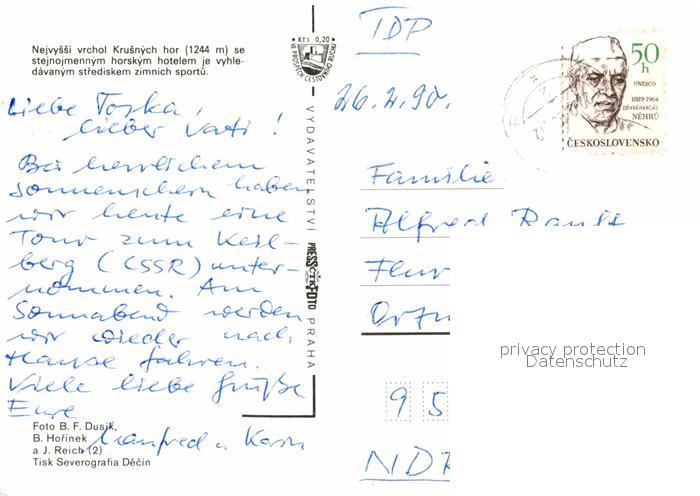 Nejvyšší vrchol Krušných hor (1244 m) se
stejnojmenným horským hotelem je vyhle-
dávaným střediskem zimních sportů.
Liebe Toska,
lieber Vati!
Bei herrlichem
Sonnenschein haben
wir heute eine
Tour zum Keil-
berg (CSSR) unter-
nommen. Am
Sonnabend werden
wir wieder nach
Hause fahren.
Viele liebe Grüße
Eure
Manfred u. Karin
Foto B. F. Dusík,
B. Hořínek
a J. Reich (2)
Tisk Severografia Děčín
Kčs 0,20
VE PROSPĚCH CESTOVNÍHO RUCHU
VYDAVATELSTVÍ PRESSFOTO PRAHA
TDP
26.2.90.
50 h
UNESCO
1889-1964
DŽAVÁHARLÁL
NÉHRÚ
ČESKOSLOVENSKO
Familie
Alfred
Flur
95
NDR
privacy protection
Datenschutz